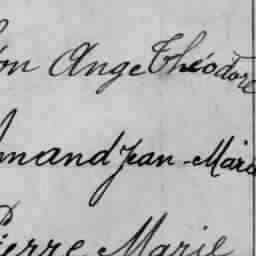 on Ange Théodore
mand Jean-Marie
Pierre Marie